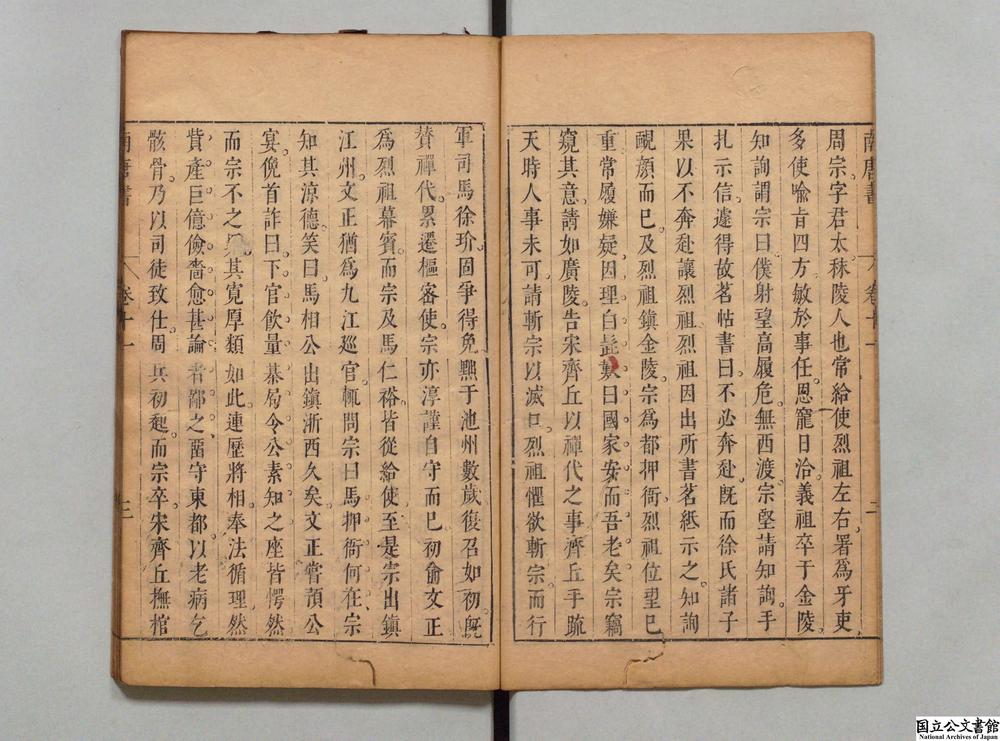 周宗。字君太。秣陵人也。常給使烈祖左右。署爲牙吏。
多使喩旨四方。敏於事任。恩寵日洽。義祖卒于金陵。
知詢謂宗曰。僕射望高履危。無西渡。宗堅請知詢。手
扎示信。遽得故茗帖書曰。不必奔赴。旣而徐氏諸子
果以不奔赴讓烈祖。烈祖因出所書茗紙示之。知詢
靦顔而已。及烈祖鎭金陵。宗爲都押衙。烈祖位望已
重。常履嫌疑。因理白髭歎曰。國家安而吾老矣。宗竊
窺其意。請如廣陵。告宋齊丘以禪代之事。齊丘手疏
天時人事未可。請斬宗以滅口。烈祖懼欲斬宗。而行
軍司馬徐玠。固爭得免。黜于池州。數歲復召如初。旣
贊禪代。累遷樞密使。宗亦淳謹自守而已。初俞文正
爲烈祖幕賓。而宗及馬仁裕皆從給使。至是宗出鎭
江州。文正猶爲九江廵官。輒問宗曰。馬押衙何在。宗
知其涼德。笑曰。馬相公出鎭浙西久矣。文正嘗預公
宴。俛首詐曰。下官飮量棊局。令公素知之。座皆愕然。
而宗不之其寛厚類如此。連歷將相。奉法循理。然
貲產巨億。儉嗇愈甚。論者鄙之。畱守東都。以老病乞
骸骨。乃以司徒致仕。周兵初起。而宗卒。宋齊丘撫棺
南唐書
卷十一
三
国立公文書館
National Archives of Japan